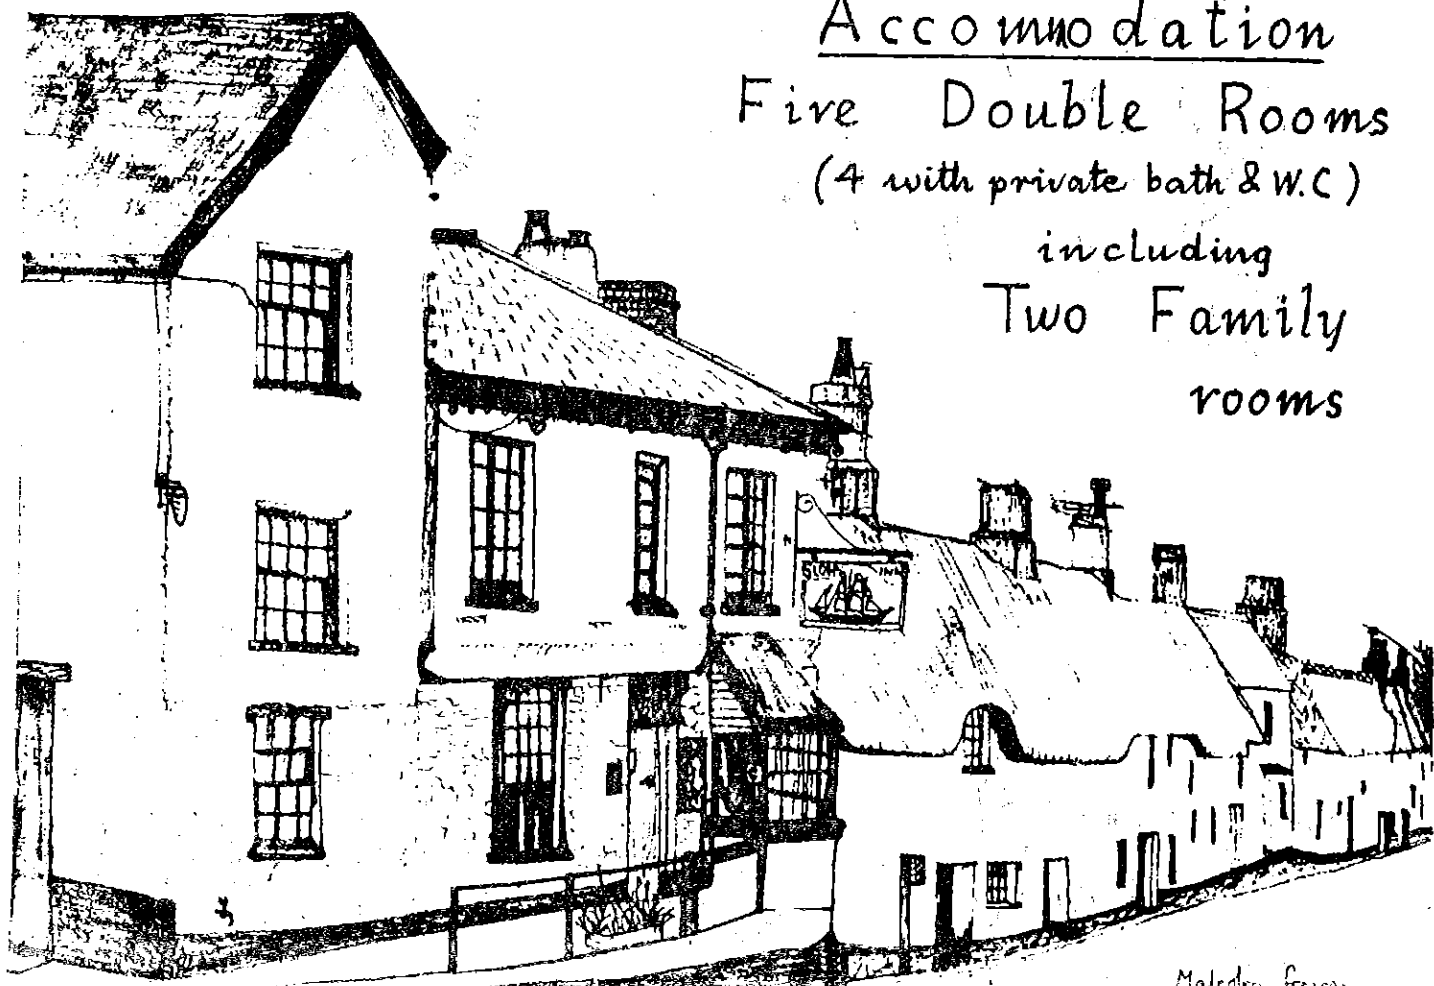 Accommodation
Five Double Rooms
(4 with private bath & W.C)
including
Two Family
rooms
INN
Malcolm